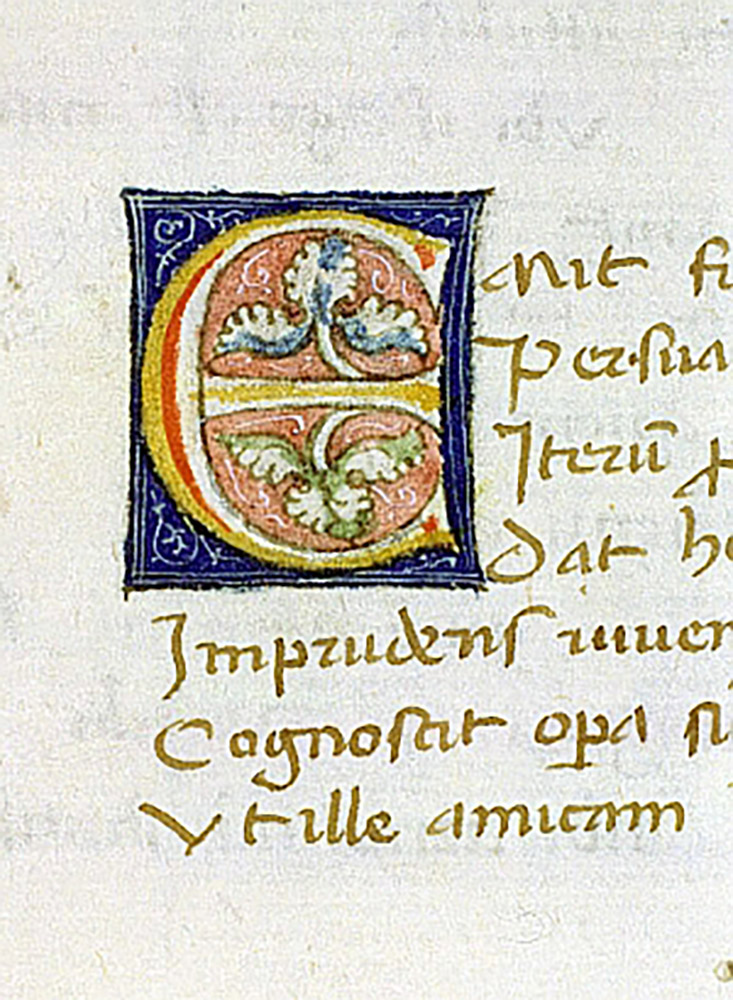 Emit fi
Persua
Iterū ꝓ
Dat he
Imprudens iuuen
Cognoscit oꝑa si
Vt ille amicam